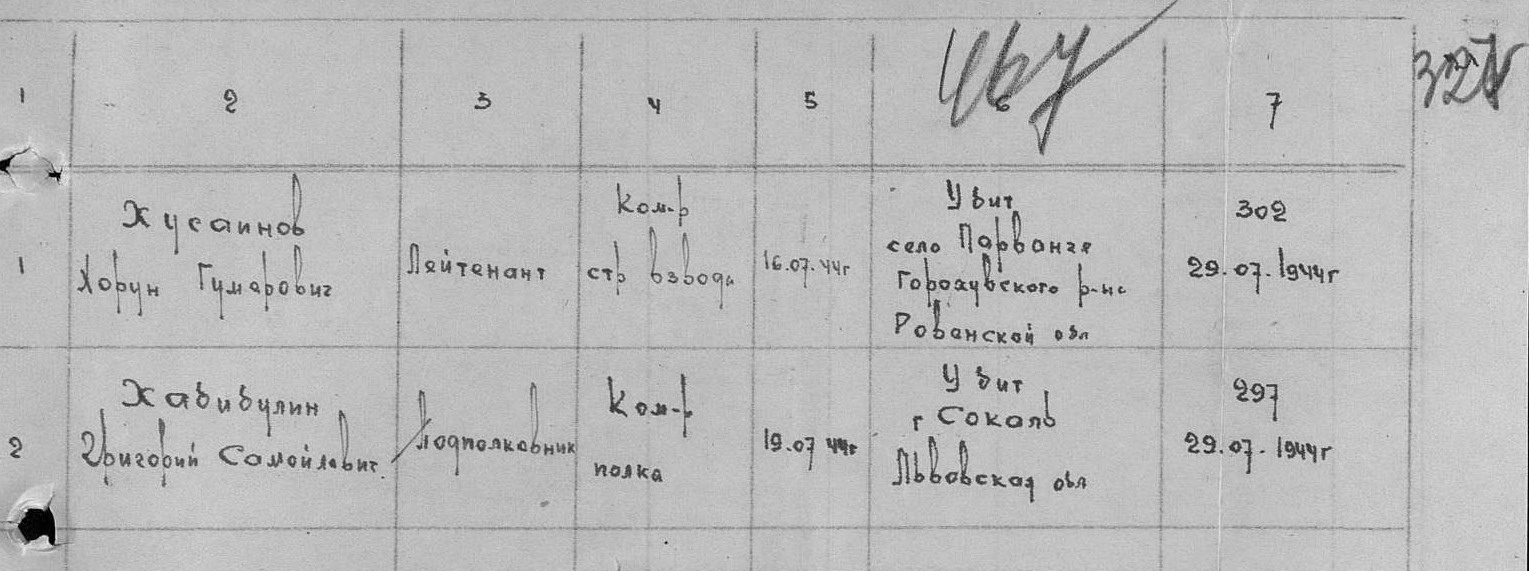 467
327
1 2 3 4 5 6 7
1
Хусаинов
Хорун Гумарович
Лейтенант
Ком-р
стр взвода
16.07.44г
Убит
село
Горохувского р-на
Ровенской обл
302
29.07.1944г
2
Хабибулин
Григорий Самойлович
Подполковник
Ком-р
полка
19.07 44г
Убит
г Сокаль
Львовская обл
297
29.07.1944г